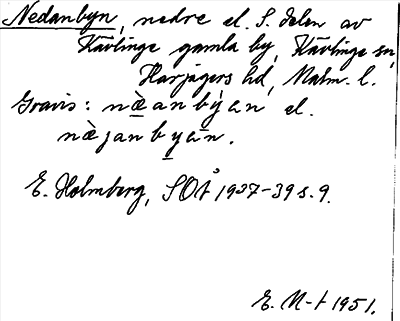 Nedanbyn, nedre el. S. delen av
Kävlinge gamla by, Kävlinge sn,
Harjagers hd, Malm. l.
Gravis: næ̀anbẏen el.
næ̀janbyen.
E. Holmberg, SOÅ 1937-39 s. 9.
E. N-t 1951.